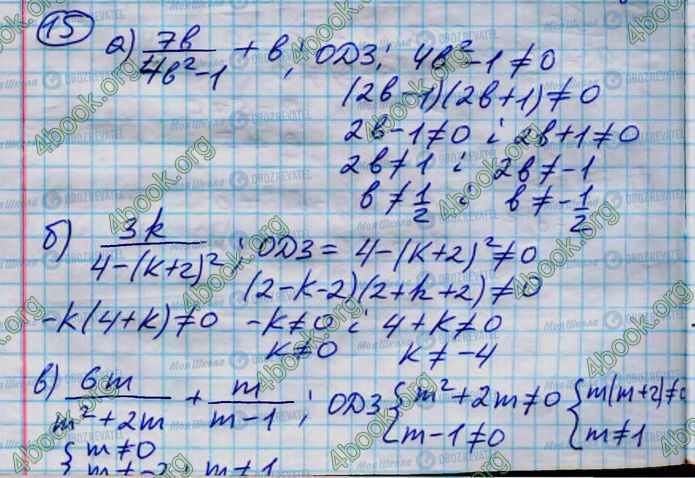 15
а) 7b/(4b²-1) + b; ОДЗ; 4b²-1≠0
(2b-1)(2b+1)≠0
2b-1≠0 і 2b+1≠0
2b≠1 і 2b≠-1
b≠1/2 і b≠-1/2
б) 3k/(4-(k+2)²); ОДЗ = 4-(k+2)²≠0
(2-k-2)(2+k+2)≠0
-k(4+k)≠0 -k≠0 і 4+k≠0
k≠0 k≠-4
в) 6m/(m²+2m) + m/(m-1); ОДЗ { m²+2m≠0 { m(m+2)≠0
m-1≠0 m≠1
{ m≠0
m≠-2; m≠1
4book.org
Моя Школа
OBOZREVATEL